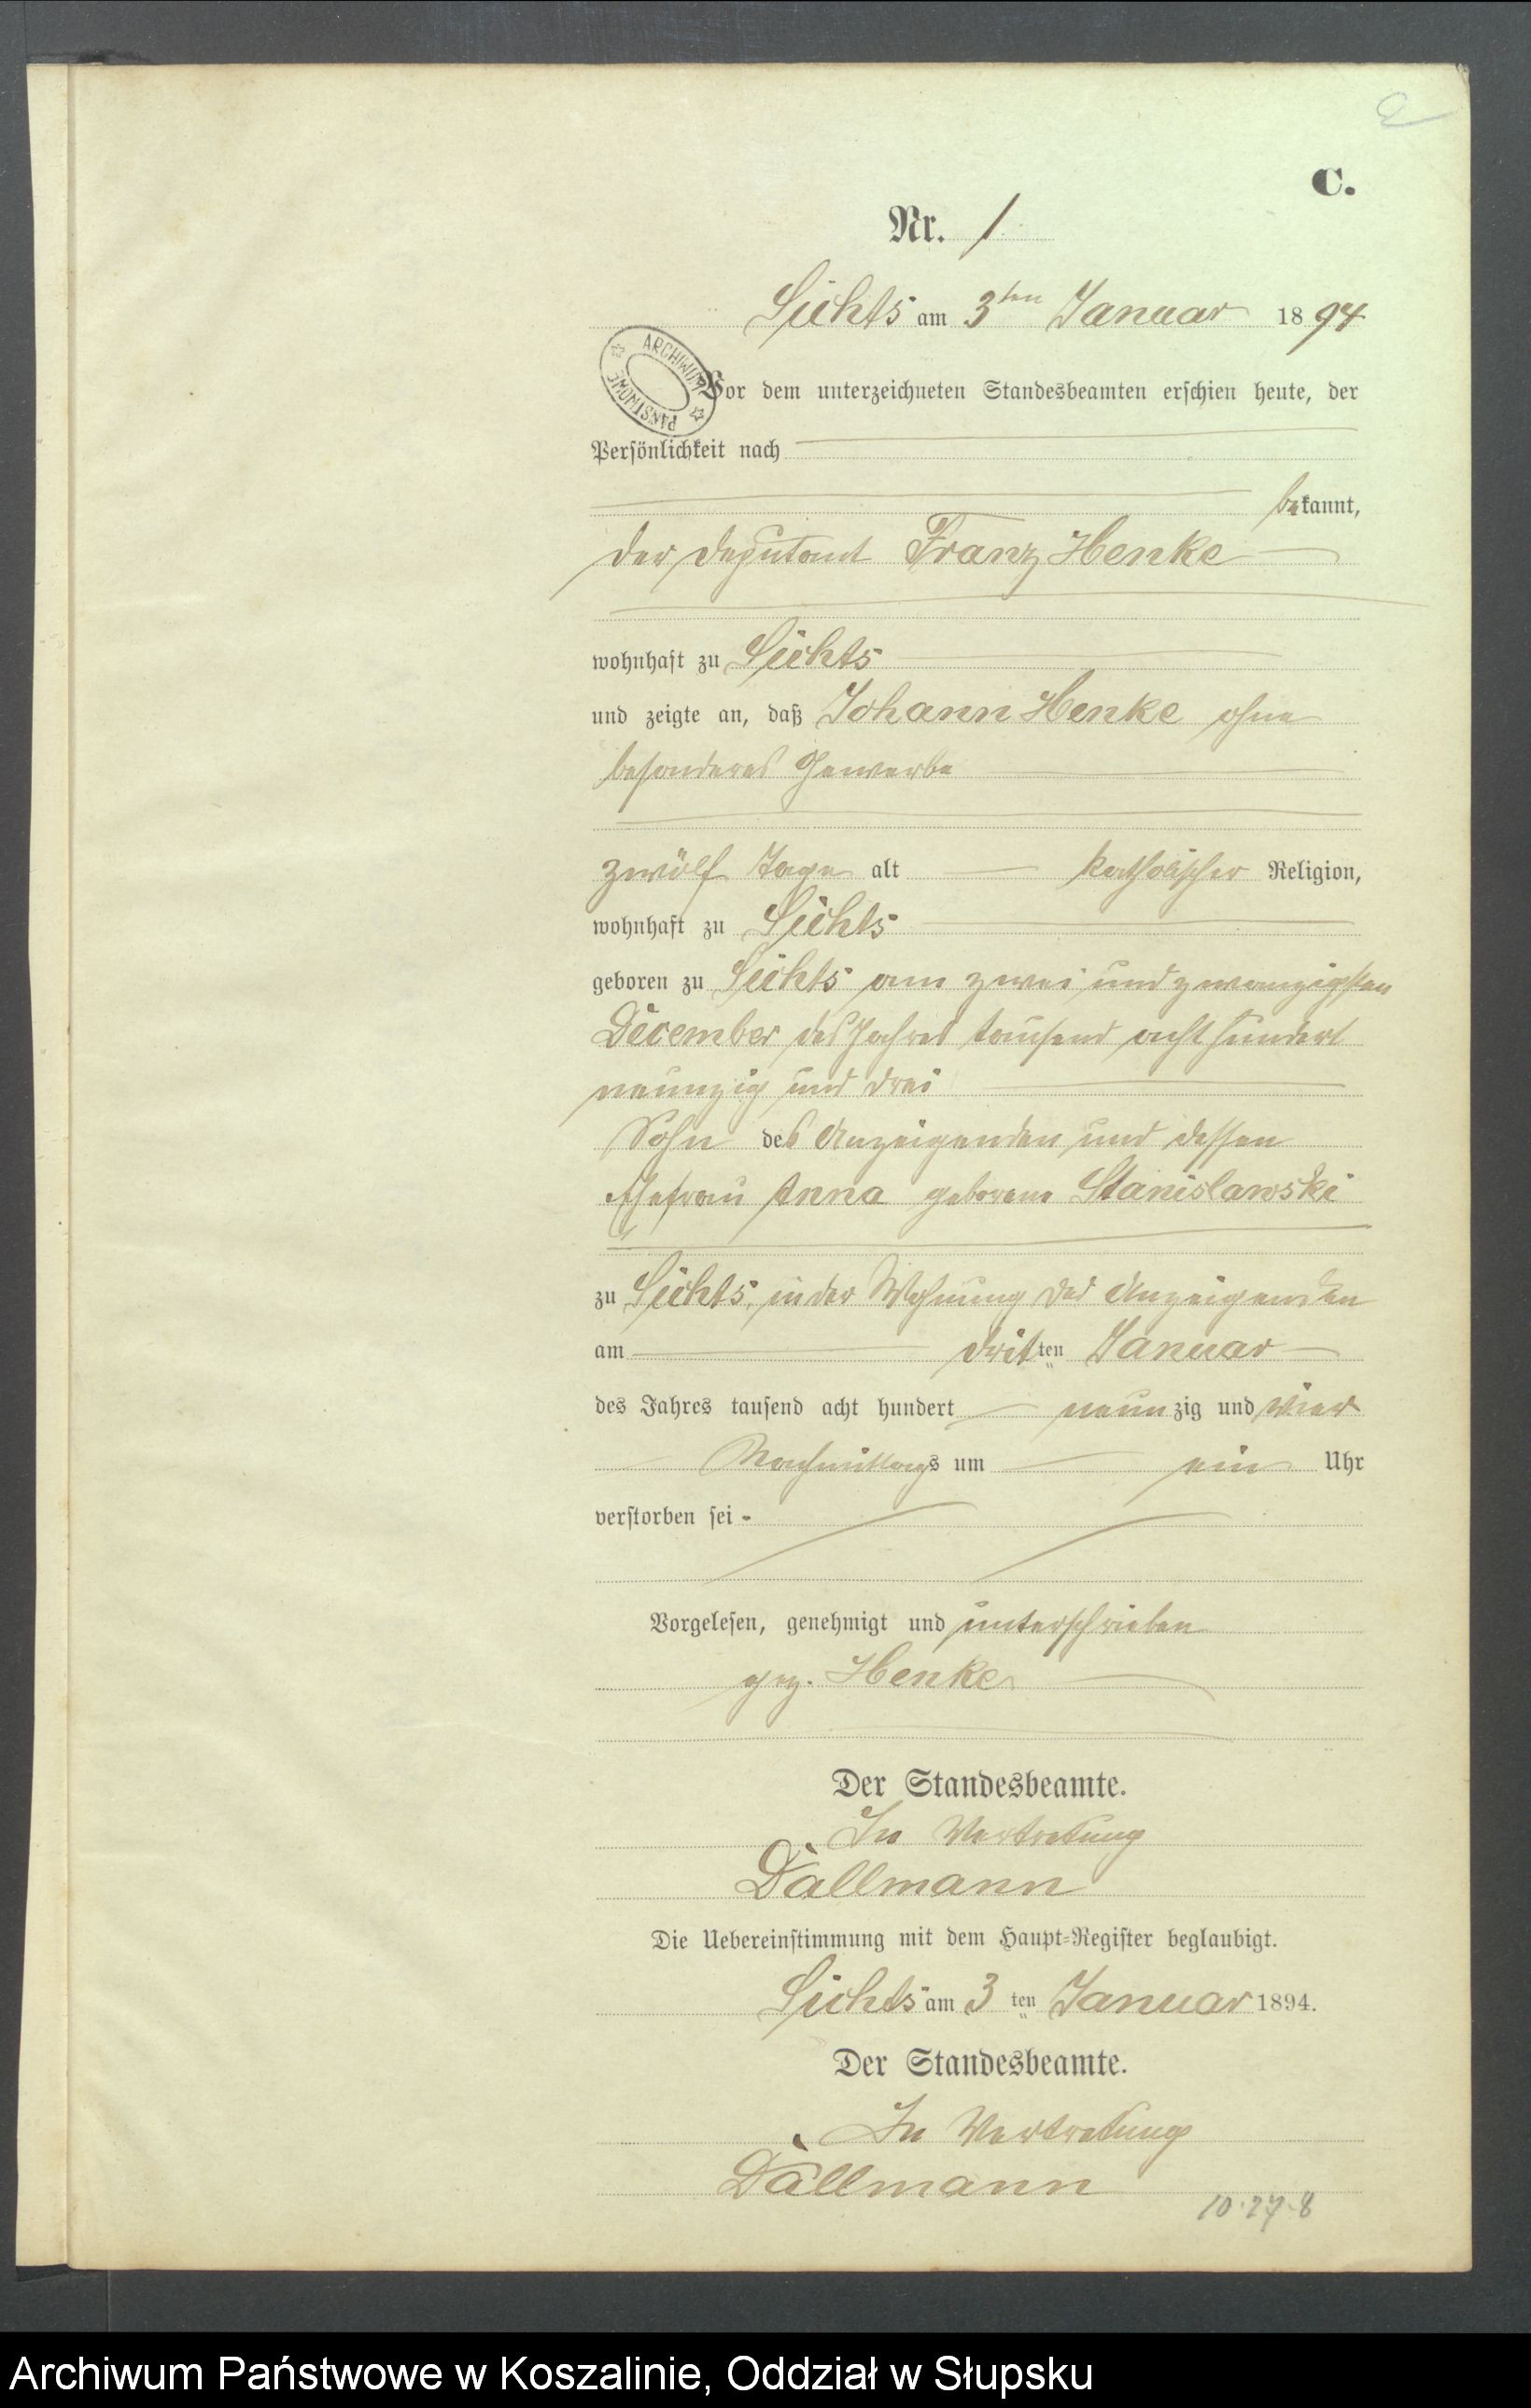 C.
Nr. 1
Lichts am 3ten Januar 1894
ARCHIWUM PAŃSTWOWE
Vor dem unterzeichneten Standesbeamten erschien heute, der
Persönlichkeit nach
bekannt,
der Deputant Franz Henke
wohnhaft zu
und zeigte an, daß Johann Henke ohne
besonderes Gewerbe
zwölf Tage alt katholischer Religion,
wohnhaft zu
geboren zu am zwei und zwanzigsten
December des Jahres tausend acht hundert
neunzig und drei
Sohn des Anzeigenden und dessen
Ehefrau Anna geborene Stanislawski
zu in der Wohnung des Anzeigenden
am dritten Januar
des Jahres tausend acht hundert neunzig und vier
Nachmittags um ein Uhr
verstorben sei.
Vorgelesen, genehmigt und unterschrieben
gez. Henke
Der Standesbeamte.
In Vertretung
Dallmann
Die Uebereinstimmung mit dem Haupt-Register beglaubigt.
am 3ten Januar 1894.
Der Standesbeamte.
In Vertretung
Dallmann
10.27.8
Archiwum Państwowe w Koszalinie, Oddział w Słupsku